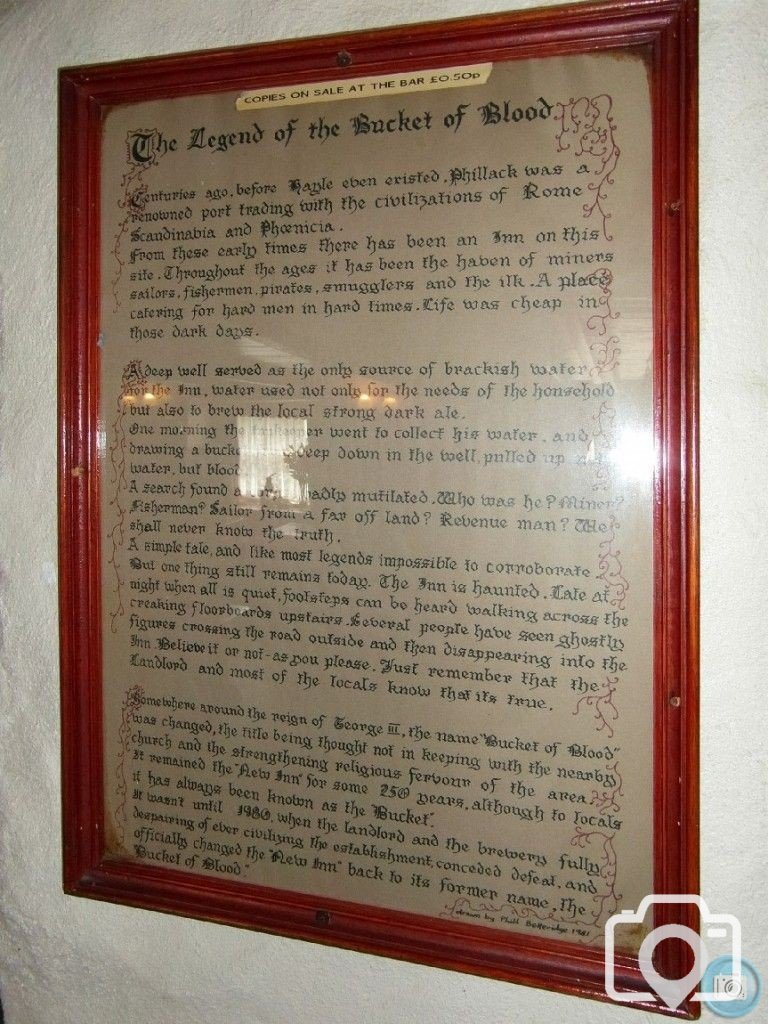 COPIES ON SALE AT THE BAR £0.50p
The Legend of the Bucket of Blood
Centuries ago, before Hayle even existed, Phillack was a
renowned port trading with the civilizations of Rome
Scandinabia and Phœnicia.
From these early times there has been an Inn on this
site. Throughout the ages it has been the haven of miners
sailors, fishermen, pirates, smugglers and the ilk. A place
catering for hard men in hard times. Life was cheap in
those dark days.
A deep well served as the only source of brackish water
for the Inn, water used not only for the needs of the household
but also to brew the local strong dark ale.
One morning the went to collect his water, and
drawing a deep down in the well, pulled up
water, but blood
A search found a badly mutilated. Who was he? Miner?
Fisherman? Sailor from a far off land? Revenue man? We
shall never know the truth.
A simple tale, and like most legends impossible to corroborate.
But one thing still remains today. The Inn is haunted. Late at
night when all is quiet, footsteps can be heard walking across the
creaking floorboards upstairs. Several people have seen ghostly
figures crossing the road outside and then disappearing into the
Inn. Believe it or not - as you please. Just remember that the
Landlord and most of the locals know that its true.
Somewhere around the reign of George III, the name "Bucket of Blood"
was changed, the title being thought not in keeping with the nearby
church and the strengthening religious fervour of the area.
It remained the "New Inn" for some 250 years, although to locals
it has always been known as the "Bucket".
It wasn't until 1980, when the landlord and the brewery fully
despairing of ever civilizing the establishment, conceded defeat, and
officially changed the "New Inn" back to its former name, the
"Bucket of Blood."
drawn by Phill 1981